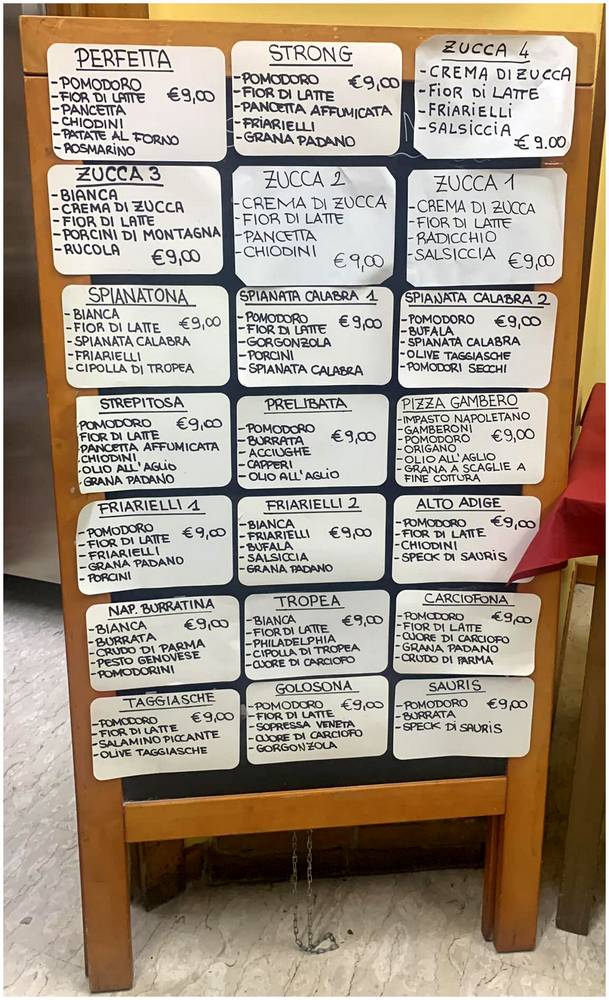 PERFETTA
-POMODORO
-FIOR DI LATTE €9,00
-PANCETTA
-CHIODINI
-PATATE AL FORNO
-ROSMARINO
STRONG
-POMODORO €9,00
-FIOR DI LATTE
-PANCETTA AFFUMICATA
-FRIARIELLI
-GRANA PADANO
ZUCCA 4
-CREMA DI ZUCCA
-FIOR DI LATTE
-FRIARIELLI
-SALSICCIA
€9.00
ZUCCA 3
-BIANCA
-CREMA DI ZUCCA
-FIOR DI LATTE
-PORCINI DI MONTAGNA
-RUCOLA €9,00
ZUCCA 2
-CREMA DI ZUCCA
-FIOR DI LATTE
-PANCETTA
-CHIODINI
€9,00
ZUCCA 1
-CREMA DI ZUCCA
-FIOR DI LATTE
-RADICCHIO
-SALSICCIA €9,00
SPIANATONA
-BIANCA
-FIOR DI LATTE €9,00
-SPIANATA CALABRA
-FRIARIELLI
-CIPOLLA DI TROPEA
SPIANATA CALABRA 1
-POMODORO €9,00
-FIOR DI LATTE
-GORGONZOLA
-PORCINI
-SPIANATA CALABRA
SPIANATA CALABRA 2
-POMODORO €9,00
-BUFALA
-SPIANATA CALABRA
-OLIVE TAGGIASCHE
-POMODORI SECCHI
STREPITOSA
-POMODORO €9,00
-FIOR DI LATTE
-PANCETTA AFFUMICATA
-CHIODINI
-OLIO ALL'AGLIO
-GRANA PADANO
PRELIBATA
-POMODORO
-BURRATA €9,00
-ACCIUGHE
-CAPPERI
-OLIO ALL'AGLIO
PIZZA GAMBERO
-IMPASTO NAPOLETANO
-GAMBERONI
-POMODORO €9,00
-ORIGANO
-OLIO ALL'AGLIO
-GRANA A SCAGLIE A
FINE COTTURA
FRIARIELLI 1
-POMODORO €9,00
-FIOR DI LATTE
-FRIARIELLI
-GRANA PADANO
-PORCINI
FRIARIELLI 2
-BIANCA
-FRIARIELLI €9,00
-BUFALA
-SALSICCIA
-GRANA PADANO
ALTO ADIGE
-POMODORO €9,00
-FIOR DI LATTE
-CHIODINI
-SPECK DI SAURIS
NAP. BURRATINA
-BIANCA €9,00
-BURRATA
-CRUDO DI PARMA
-PESTO GENOVESE
-POMODORINI
TROPEA
-BIANCA €9,00
-FIOR DI LATTE
-PHILADELPHIA
-CIPOLLA DI TROPEA
-CUORE DI CARCIOFO
CARCIOFONA
-POMODORO €9,00
-FIOR DI LATTE
-CUORE DI CARCIOFO
-GRANA PADANO
-CRUDO DI PARMA
TAGGIASCHE
-POMODORO €9,00
-FIOR DI LATTE
-SALAMINO PICCANTE
-OLIVE TAGGIASCHE
GOLOSONA
-POMODORO €9,00
-FIOR DI LATTE
-SOPRESSA VENETA
-CUORE DI CARCIOFO
-GORGONZOLA
SAURIS
-POMODORO €9,00
-BURRATA
-SPECK DI SAURIS